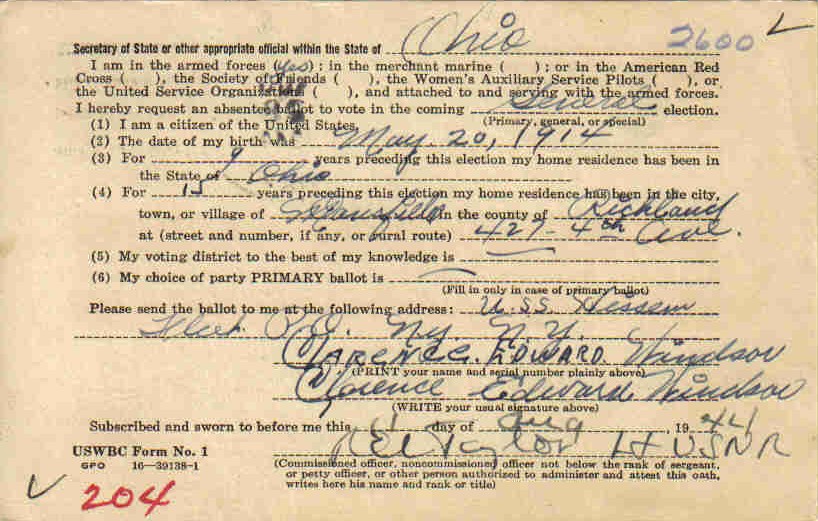 Secretary of State or other appropriate official within the State of Ohio 2600
I am in the armed forces (yes); in the merchant marine ( ); or in the American Red
Cross ( ), the Society of Friends ( ), the Women's Auxiliary Service Pilots ( ), or
the United Service Organizations ( ), and attached to and serving with the armed forces.
I hereby request an absentee ballot to vote in the coming General election.
(Primary, general, or special)
(1) I am a citizen of the United States.
(2) The date of my birth was May. 20, 1914
(3) For 9 years preceding this election my home residence has been in
the State of Ohio
(4) For 15 years preceding this election my home residence has been in the city,
town, or village of Mansfield in the county of Richland
at (street and number, if any, or rural route) 427-4th Ave.
(5) My voting district to the best of my knowledge is —
(6) My choice of party PRIMARY ballot is —
(Fill in only in case of primary ballot)
Please send the ballot to me at the following address: U.S.S. Hissem
Fleet P.O. Ny. N.Y.
CLARENCE. EDWARD Windsor
(PRINT your name and serial number plainly above)
Clarence Edward Windsor
(WRITE your usual signature above)
Subscribed and sworn to before me this 11 day of Aug, 1944
USWBC Form No. 1 Taylor Lt USNR
GPO 16—39138-1 (Commissioned officer, noncommissioned officer not below the rank of sergeant,
or petty officer, or other person authorized to administer and attest this oath,
writes here his name and rank or title)
204